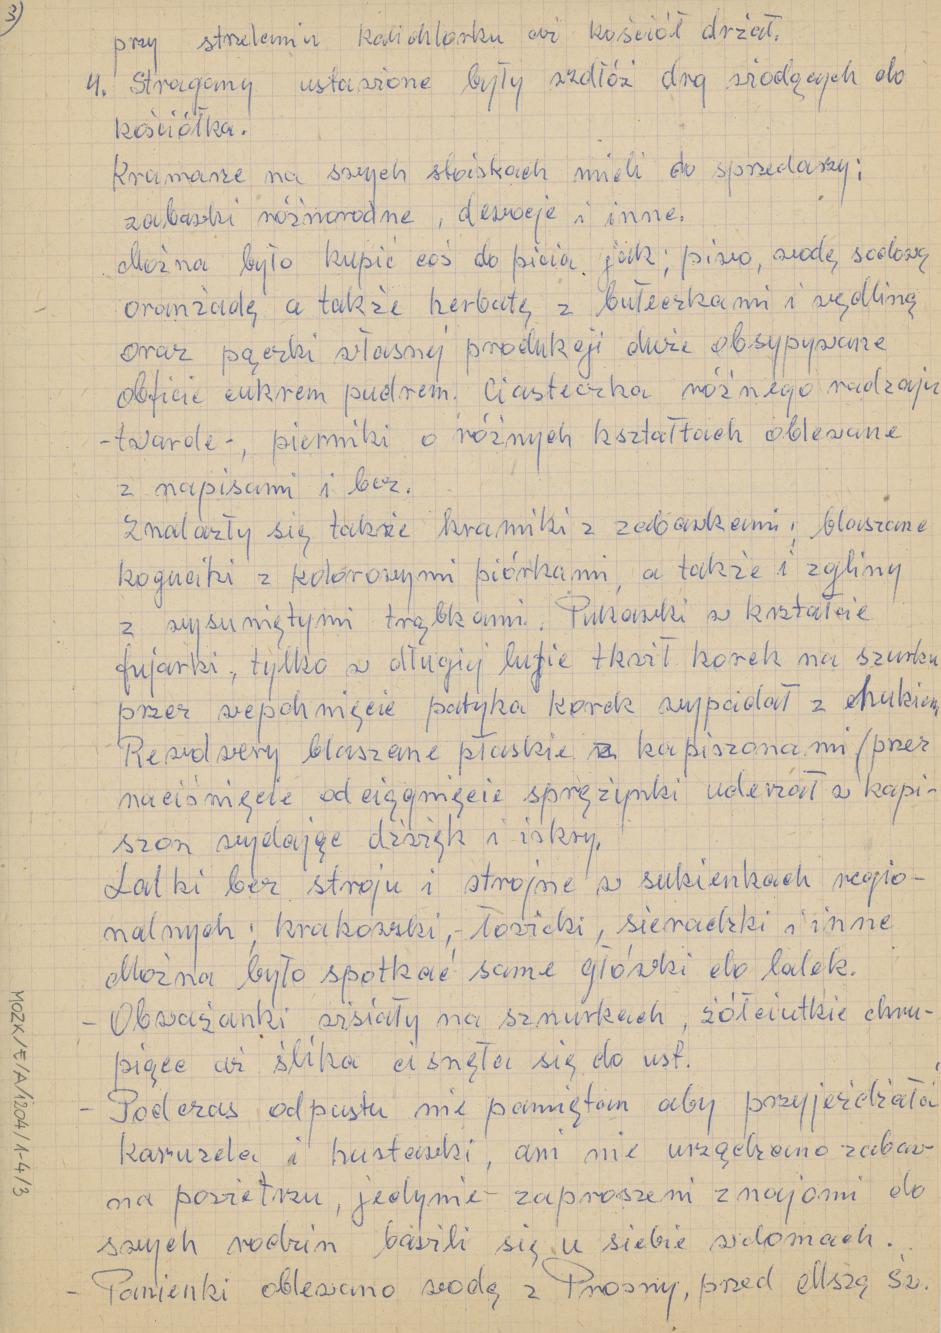 3)
przy strzelaniu kalichlorku aż kościół drżał.
4. Stragany ustawione były wzdłóż drg wiodących do
kościółka.
Kramarze na swych stoiskach mieli do sprzedaży;
zabawki różnorodne, dewocje i inne.
Można było kupić coś do picia jak; piwo, wodę sodową
oranżadę a także herbatę z bułeczkami i wędliną
oraz pączki własnej produkcji duże obsypywane
obficie cukrem pudrem. Ciasteczka różnego radzaju
-twarde-, pierniki o różnych kształtach oblewane
z napisami i bez.
Znalazły się także kramiki z zabawkami; blaszane
koguciki z kolorowymi piórkami, a także i zgliny
z wysuniętymi trąbkami. Pukawki w krztałcie
fujarki, tylko w długiej lufie tkwił korek na szurku
przez wepchnięcie patyka korek wypadał z chukiem
Rewolwery blaszane płaskie z kapiszonami (przez
naciśnięcie odciągnięcie sprężynki uderzał w kapi-
szon wydając dźwięk i iskry.
Lalki bez stroju i strojne w sukienkach regio-
nalnych; krakowski,- łowicki, sieradzki i inne
Można było spotkać same główki do lalek.
- Obważanki wisiały na sznurkach, żółciutkie chru-
piące aż ślika cisnęła się do ust.
- Podczas odpustu nie pamiętam aby przyjeżdżała
karuzela i hustawki, ani nie urządzano zabaw
na powietrzu, jedynie zaproszeni znajomi do
swych rodzin bawili się u siebie wdomach.
- Panienki oblewano wodą z Prosny, przed Mszą Św.
MOZK/E/A/1204/1-4/3